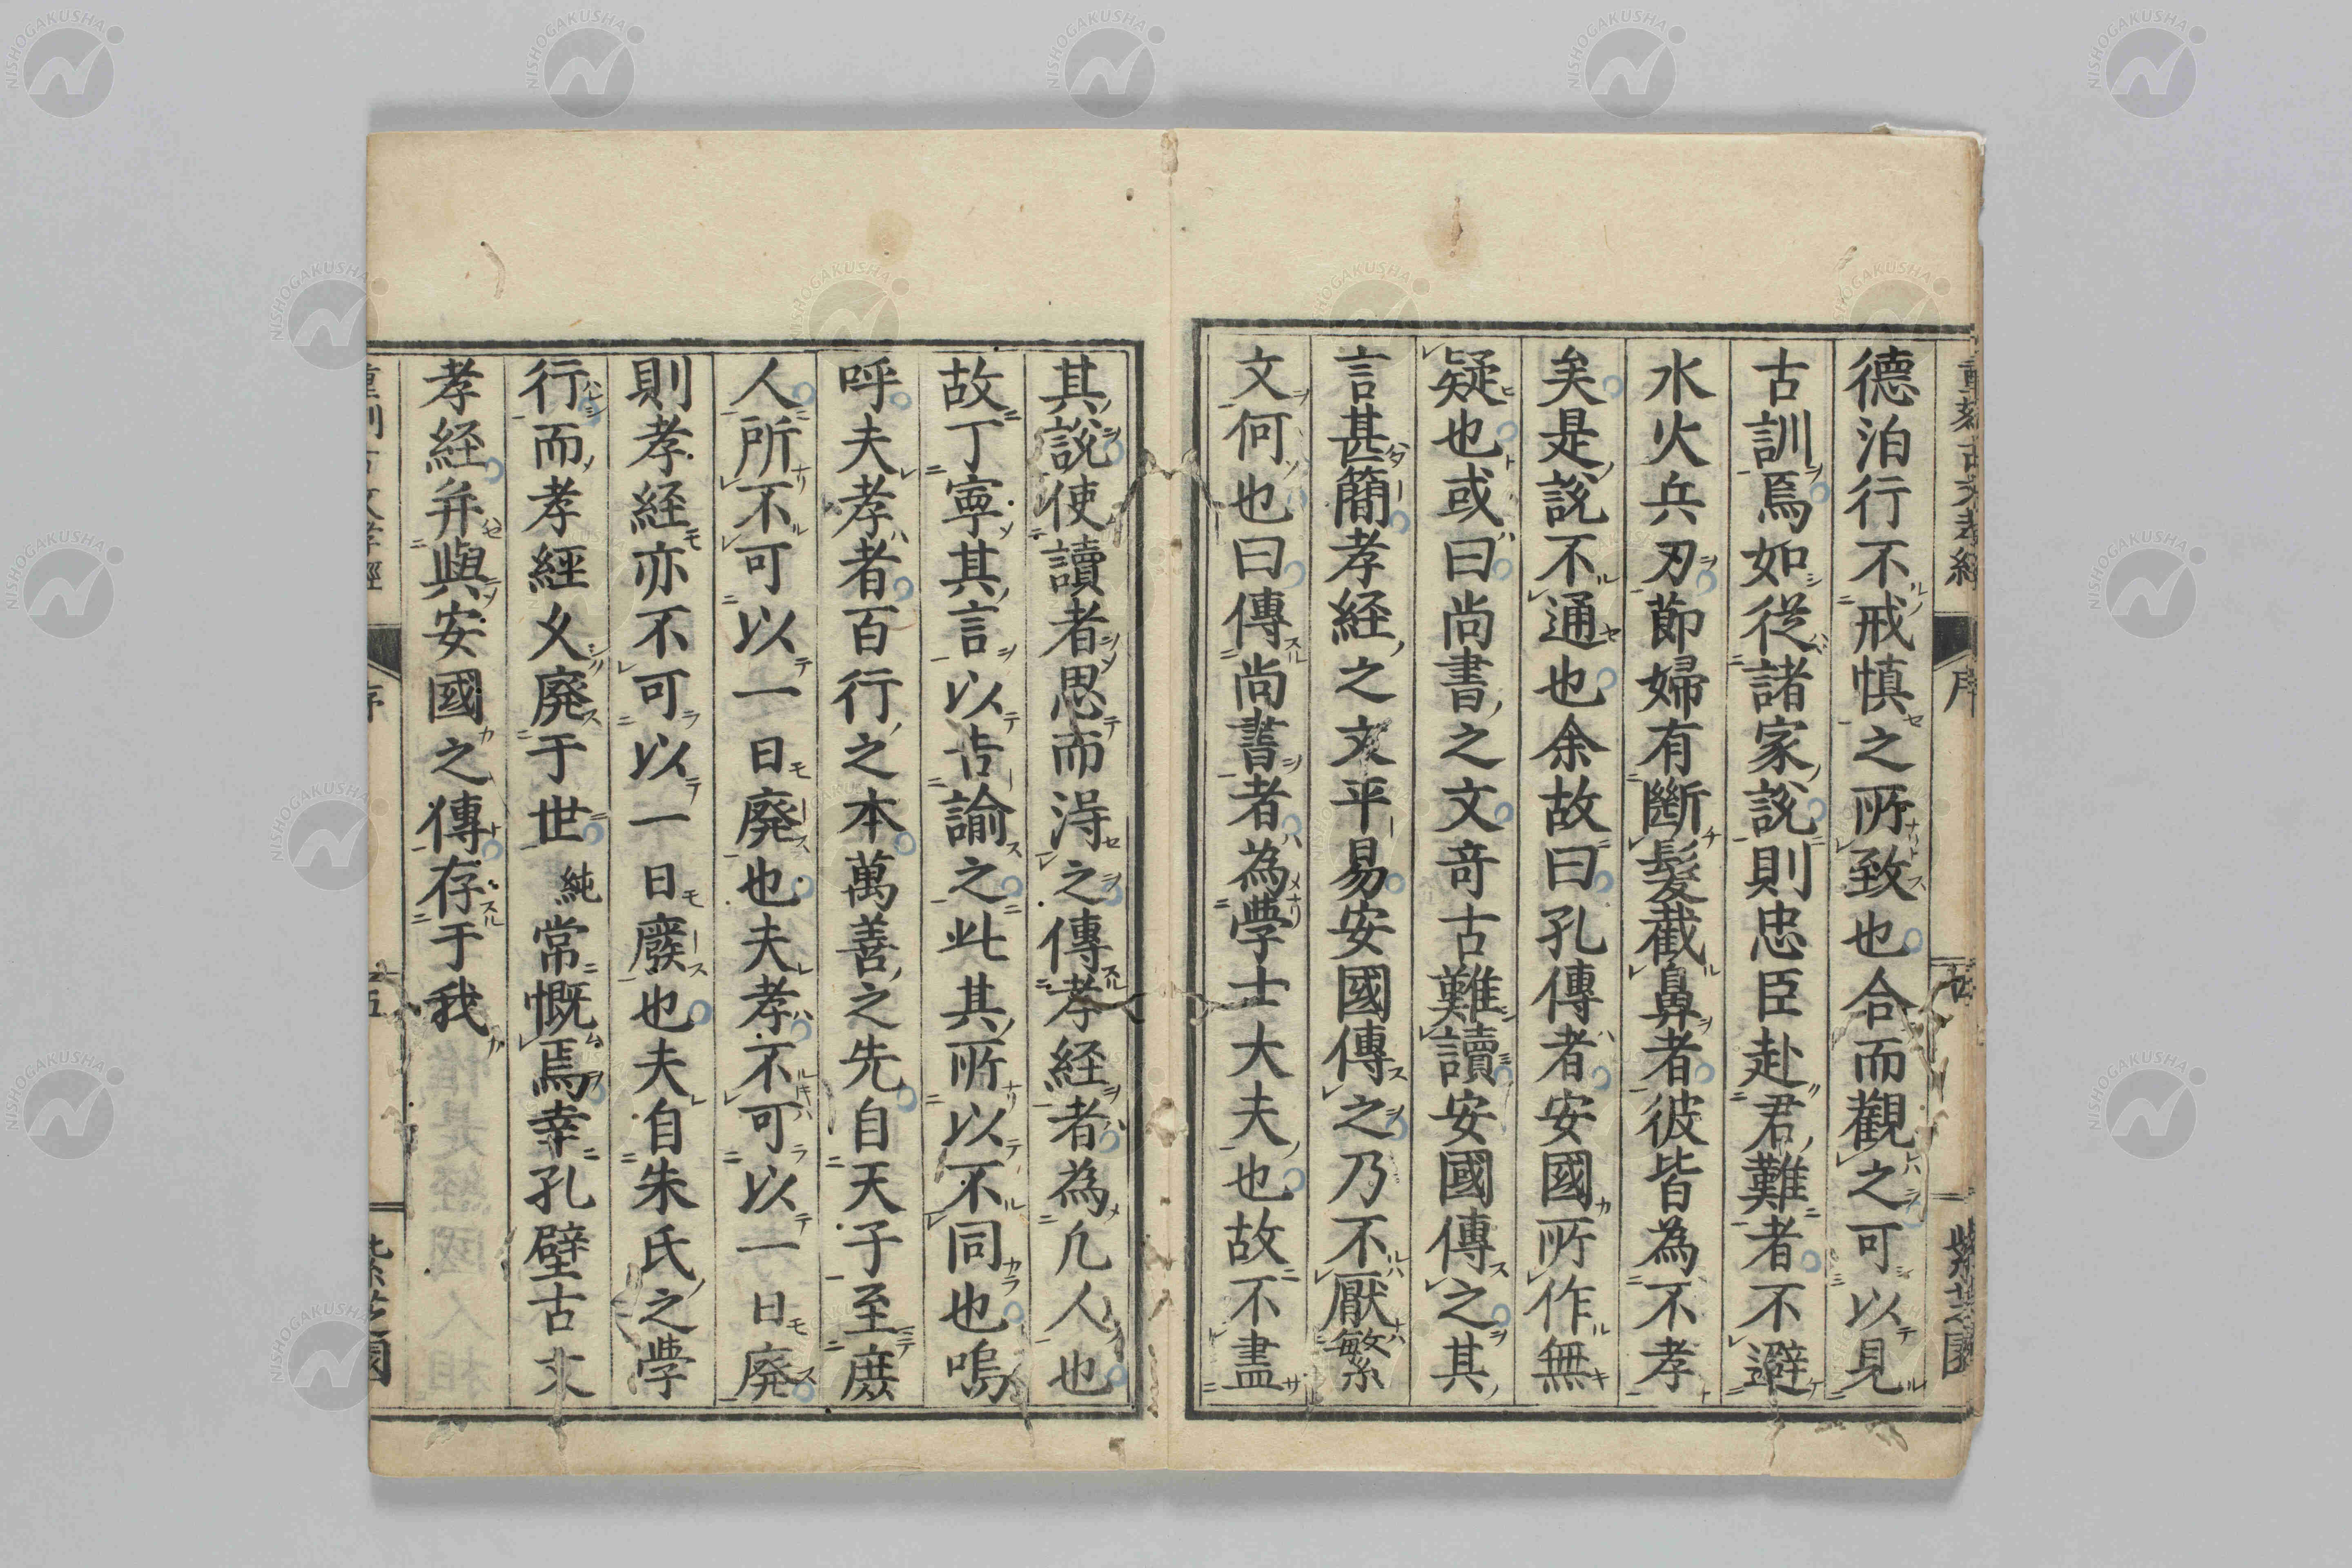 德泊行不戒慎之所致也合而觀之可以見
古訓焉如從諸家說則忠臣赴君難者不避
水火兵刃節婦有斷髮截鼻者彼皆為不孝
矣是說不通也余故曰孔傳者安國所作無
疑也或曰尚書之文竒古難讀安國傳之其
言甚簡孝経之文平易安國傳之乃不厭繁
文何也曰傳尚書者為學士大夫也故不盡
其說使讀者思而得之傳孝経者為凢人也
故丁寧其言以告諭之此其所以不同也嗚
呼夫孝者百行之本萬善之先自天子至庶
人所不可以一日廢也夫孝不可以一日廢
則孝経亦不可以一日廢也夫自朱氏之學
行而孝經乆廢于世純常慨焉幸孔壁古文
孝経并與安國之傳存于我
序
紫芝園
NISHOGAKUSHA